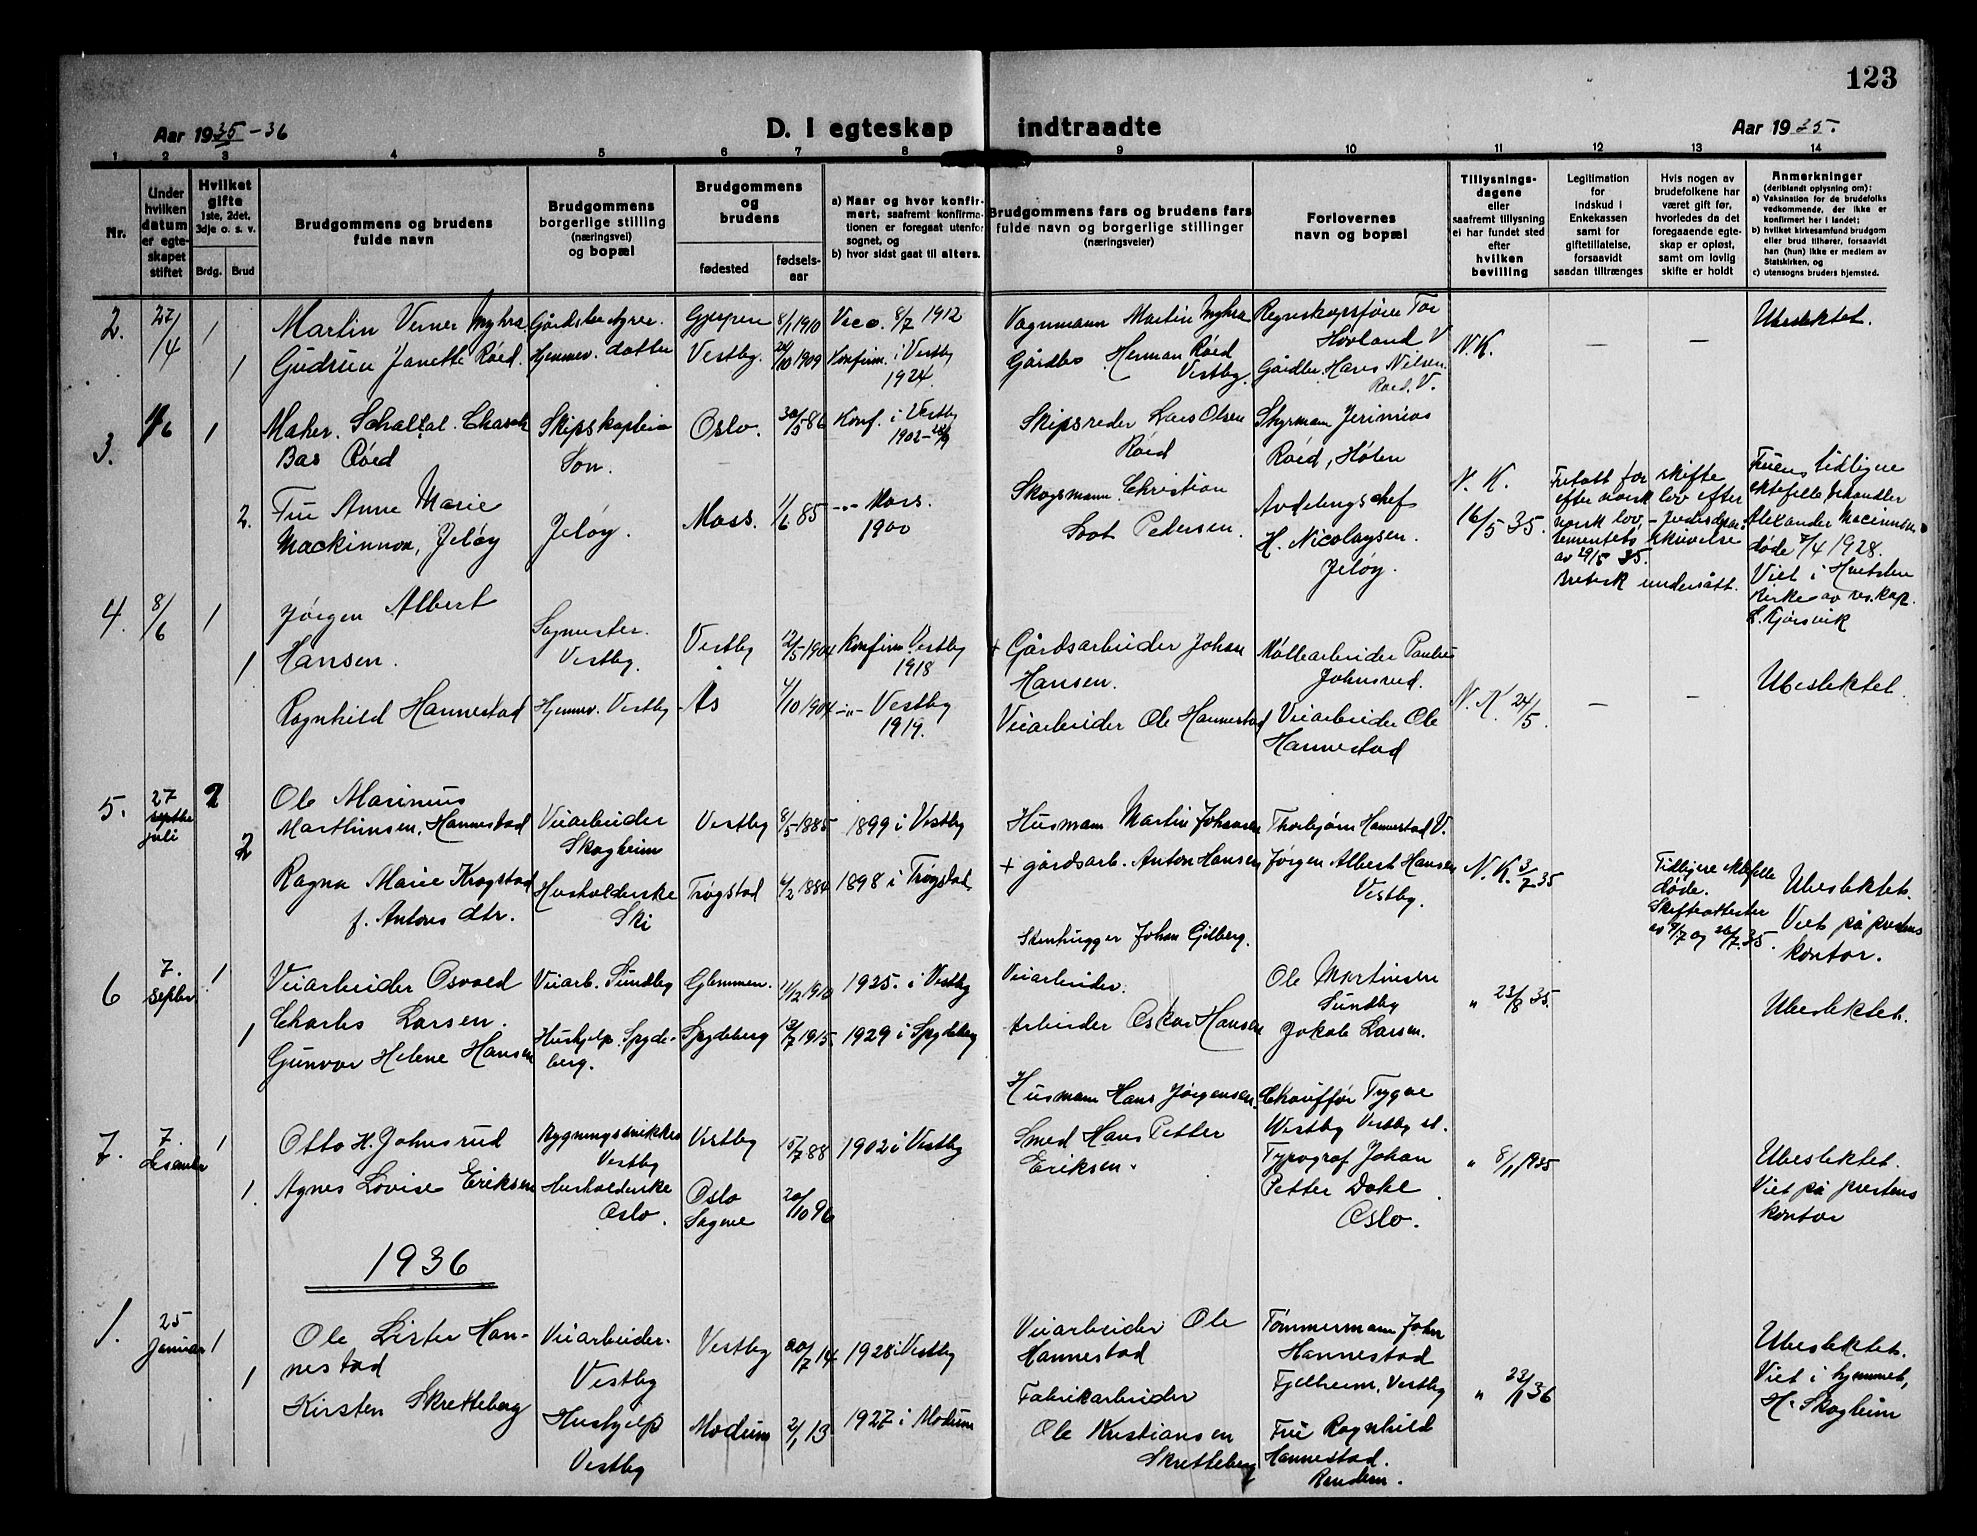 123
Aar 1935-36
D. I egteskap indtraadte
Aar 1935.
1. 2 3 4 5 6 7 8 9 10 11 12 13 14
Nr.
Under hvilken datum er egteskapet stiftet
Hvilket gifte 1ste, 2det, 3dje o. s. v.
Brdg. Brud
Brudgommens og brudens fulde navn
Brudgommens borgerlige stilling (næringsvei) og bopæl
Brudgommens og brudens
fødested
fødselsaar
a) Naar og hvor konfirmert, saafremt konfirmationen er foregaat utenfor sognet, og
b) hvor sidst gaat til alters.
Brudgommens fars og brudens fars fulde navn og borgerlige stillinger (næringsveier)
Forlovernes navn og bopæl
Tillysningsdagene eller saafremt tillysning ei har fundet sted efter hvilken bevilling
Legitimation for indskud i Enkekassen samt for giftetillatelse, forsaavidt saadan tiltrænges
Hvis nogen av brudefolkene har været gift før, hvorledes da det foregaaende egteskap er opløst, samt om lovlig skifte er holdt
Anmerkninger (deriblandt oplysning om):
a) Vaksination for de brudefolks vedkommende, der ikke er konfirmert her i landet;
b) hvilket kirkesamfund brudgom eller brud tilhører, forsaavidt han (hun) ikke er medlem av Statskirken, og
c) utensogns bruders hjemsted.
2. 27/4 1
Martin Verner Myhra Gårdsbestyrer Gjerpen 8/1 1910 Vacc. 8/7 1912
Vognmann Martin Myhra Regnskapsfører Tor Hovland V
Ubeslektet.
1 Gudrun Janette Røed. Hjemmev. datter Vestby. 24/10 1909 Konfirm. i Vestby 1924.
Gårdbr. Herman Røed Vestby. Gårdbr. Hans Nielsen Røed. V.
N.K. — —
3. 1/6 1
Bas Røed Skipskaptein Son. Oslo. 30/5 86 Konf. i Vestby 1902
Skipsreder Lars Olsen Røed Styrmann Jerimias Røed, Hølen
2. Fru Anne Marie Mackinnon, Jeløy Jeløy. Moss. 1/6 85 -"- Moss. 1900
Skogsmann Christian Soot Pedersen. Avdelingschef H. Nicolaysen. Jeløy.
N. K. 16/5 35.
Fritatt for skifte efter norsk lov efter
av 29/5 35.
Britisk undersått.
Fruens tidligere ektefelle
Alexander Macinnon
døde 7/4 1928.
Viet i Hvitsten
kirke av res. kap.
4. 8/6 1
Jørgen Albert Hansen. Sagmester. Vestby. Vestby 12/5-1904 Konfirm. Vestby 1918
+ Gårdsarbeider Johan Hansen. Møllearbeider Paulus Johnsrud.
1 Ragnhild Hannestad Hjemmev. Vestby Ås 4/10 1904 -"- Vestby 1919.
Veiarbeider Ole Hannestad Veiarbeider Ole Hannestad
N. K. 24/5. — —
Ubeslektet.
5. 27 juli 2
Ole Marinius Marthinsen, Hannestad Veiarbeider Skogheim Vestby 8/5-1885 1899 i Vestby
Husmann Martin Johansen Thorbjørn Hannestad V.
2 Ragna Marie Krogstad f. Antons dtr. Husholderske Ski Trøgstad 6/2 1884 1898 i Trøgstad
+ gårdsarb. Anton Hansen Jørgen Albert Hansen Vestby.
N. K. 3/7 35
Tidligere ektefelle døde.
Skifteattester av 9/7 og 26/7.35.
Ubeslektet.
Viet på prestens kontor.
Stenhugger Johan Gjelberg.
6 7. septbr 1
Veiarbeider Osvald Charles Larsen. Veiarb. Sundby Glemmen. 11/12 1910 1925. i Vestby
Veiarbeider. Ole Martinsen Sundby
1 Gunvor Helene Hansen Hushjelp. Spydeberg. Spydeberg 13/7 1915. 1929 i Spydeberg
Arbeider Oskar Hansen Jakob Larsen.
" 23/8 35.
Ubeslektet.
7. 7. desember 1
Otto H. Johnsrud Bygningssnikker Vestby Vestby 15/7 88 1902 i Vestby
Husmann Hans Jørgensen. Chauffør Trygve Westby Vestby st.
1. Agnes Lovise Eriksen Husholderske Oslo. Oslo Sagene 20/10 96
Smed Hans Petter Eriksen. Typograf Johan Petter Dahl Oslo.
" 8/11 1935
Ubeslektet.
Viet på prestens kontor
1936
1. 25 Januar 1
Ole Lister Hannestad Veiarbeider. Vestby Vestby 20/7 14 1928 i Vestby
Veiarbeider Ole Hannestad Tømmermann John Hannestad Fjellheim, Vestby
1 Kirsten Skretteberg Hushjelp Vestby Modum 2/1 13 1927 i Modum
Fabrikarbeider Ole Kristiansen Skretteberg Fru Ragnhild Hannestad.
" 22/1 36
Ubeslektet.
Viet i hjemmet,
H. Skogheim